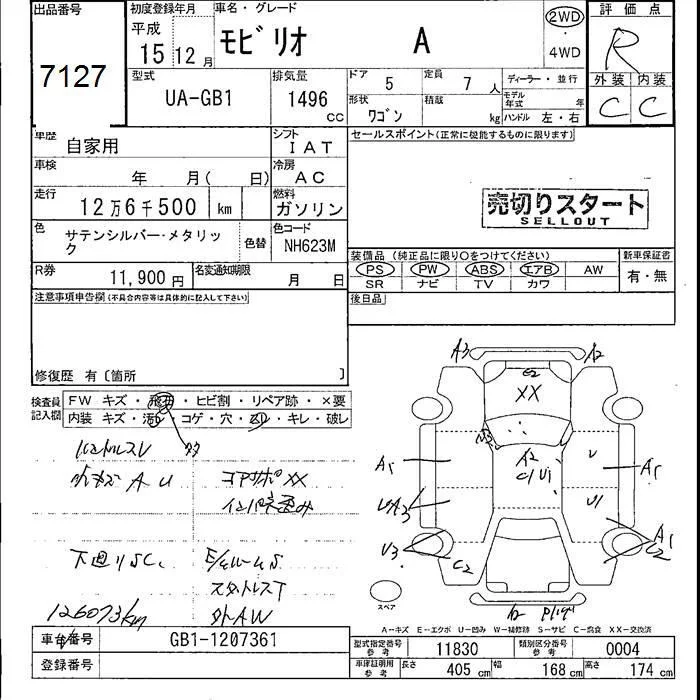 出品番号
7127
初度登録年月
平成
15 12 月
車名・グレード
モビリオ A
2WD
・
4WD
評価点
R
外装 内装
C C
型式
UA-GB1
排気量
1496 cc
ドア 5
定員 7 人
ディーラー・並行
形状 ワゴン
積載 kg
モデル年式 年
ハンドル 左・右
車歴
自家用
シフト
IAT
セールスポイント(正常に機能するものに限ります)
車検
年 月( 日)
冷房
AC
走行
12万6千500 km
燃料
ガソリン
売切りスタート
SELLOUT
色
サテンシルバー・メタリック
色替
色コード
NH623M
装備品(純正品に限り○をつけてください)
PS PW ABS エアB AW
SR ナビ TV カワ
新車保証書
有・無
R券
11,900 円
名変通知期限
月 日
後日品
注意事項申告欄(不具合内容等は具体的に記入して下さい)
修復歴 有〔箇所 〕
検査員記入欄
FW キズ・飛石・ヒビ割・リペア跡・×要
内装 キズ・汚れ・コゲ・穴・スレ・キレ・破レ
ハンドルスレ
A U
コアサポXX
インパネ歪み
下廻りSC.
スタットレスT
126073km
外AW
A3 A2
C2
XX
A2
C1 U1
A1 U A1
UA3 U1
U3 C2 A1 C2
A2
スペア
A-キズ E-エクボ U-凹み W-補修跡 S-サビ C-腐食 XX-交換済
車台番号
GB1-1207361
登録番号
型式指定番号 参考 11830
類別区分番号 参考 0004
車庫証明用 参考 長さ 405 cm 幅 168 cm 高さ 174 cm